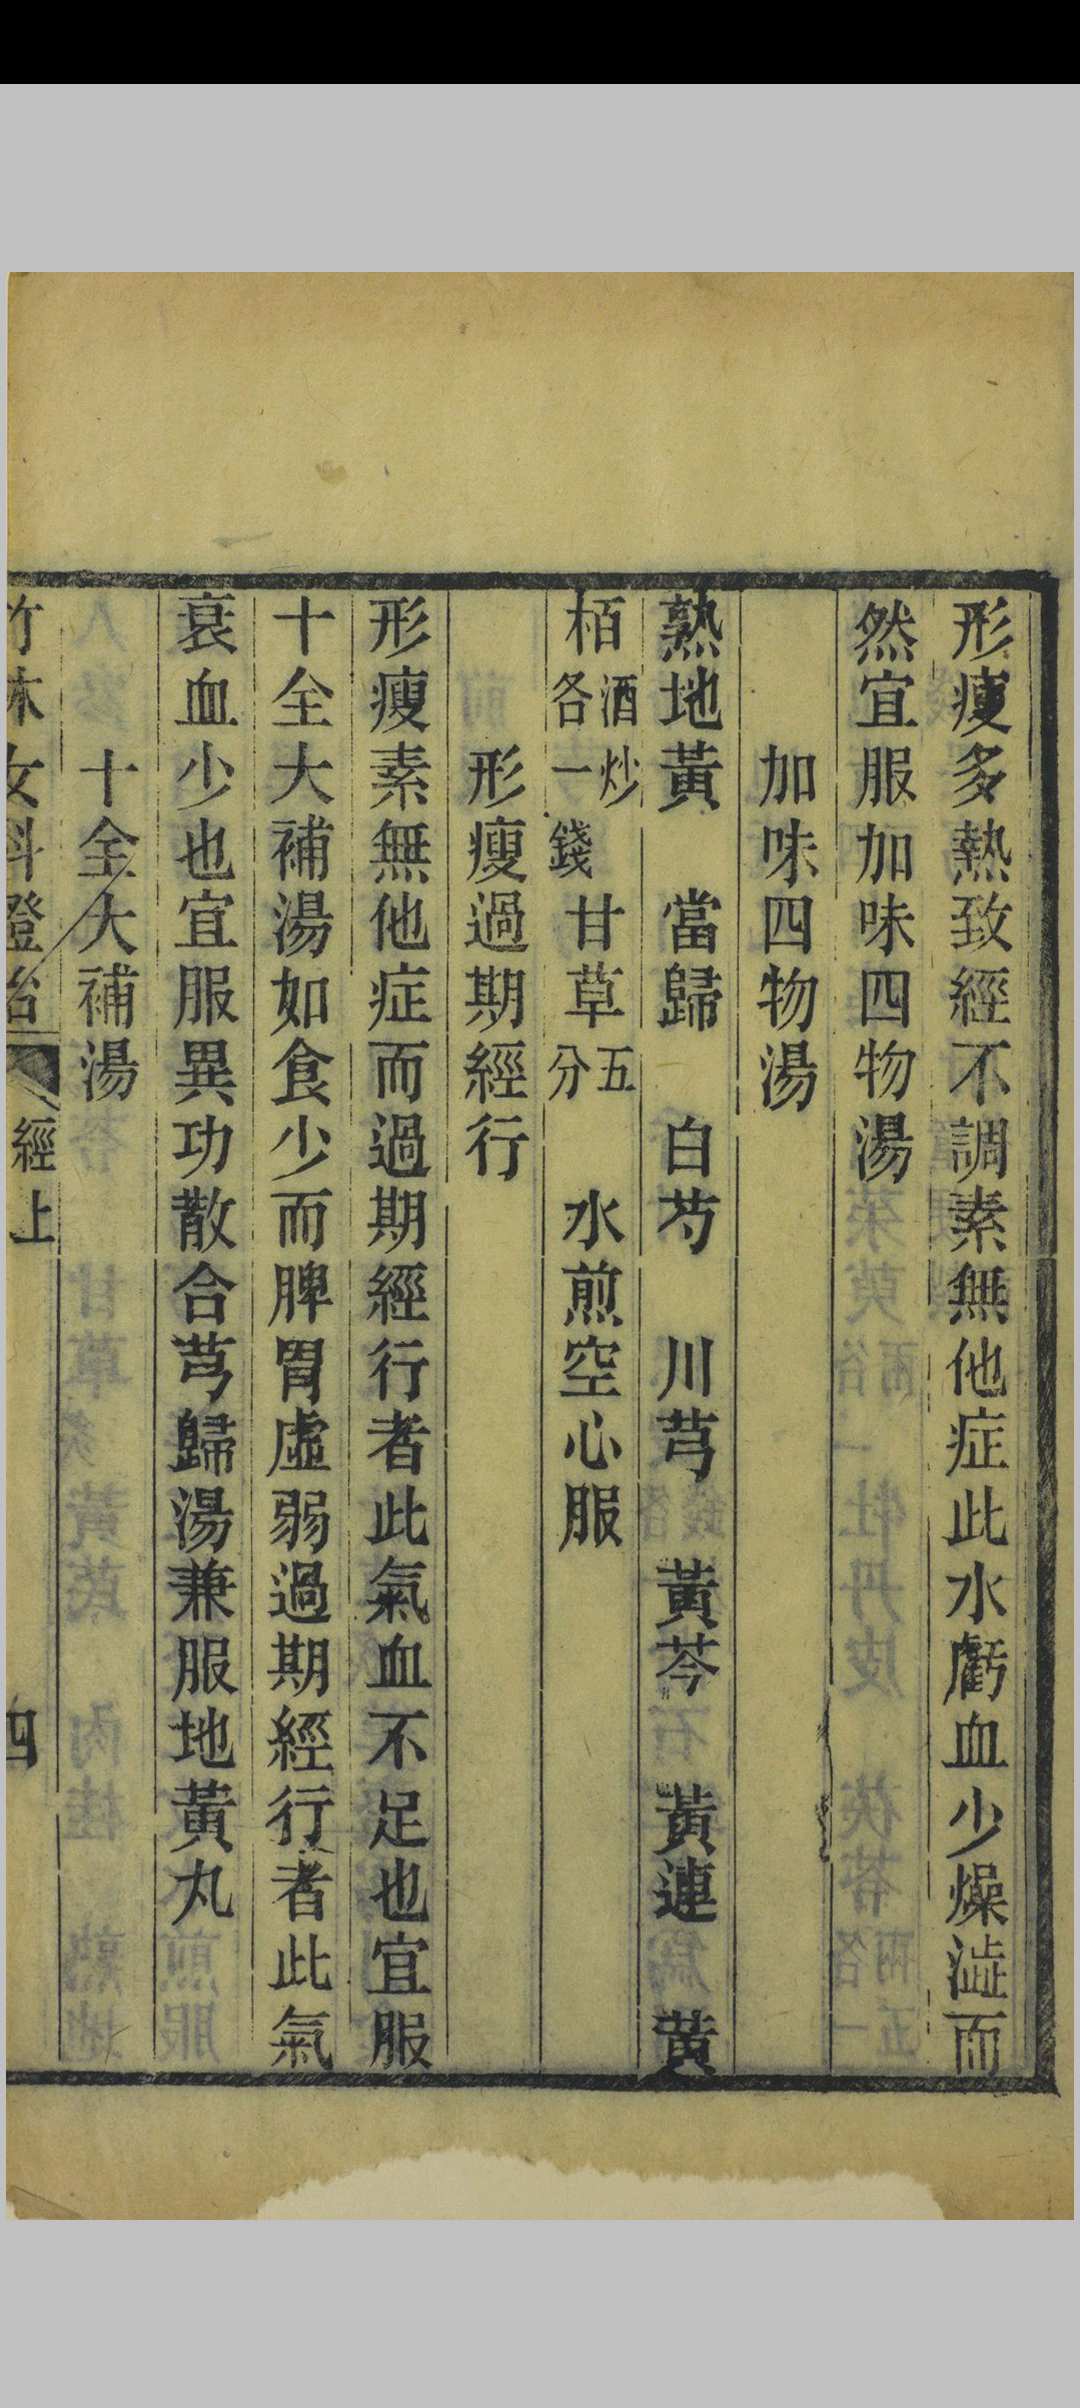 形瘦多熱致經不調素無他症此水虧血少燥澁而
然宜服加味四物湯
加味四物湯
熟地黃 當歸 白芍 川芎 黃芩 黃連 黃
栢酒炒各一錢 甘草五分 水煎空心服
形瘦過期經行
形瘦素無他症而過期經行者此氣血不足也宜服
十全大補湯如食少而脾胃虛弱過期經行者此氣
衰血少也宜服異功散合芎歸湯兼服地黃丸
十全大補湯
竹林女科證治 經上 四